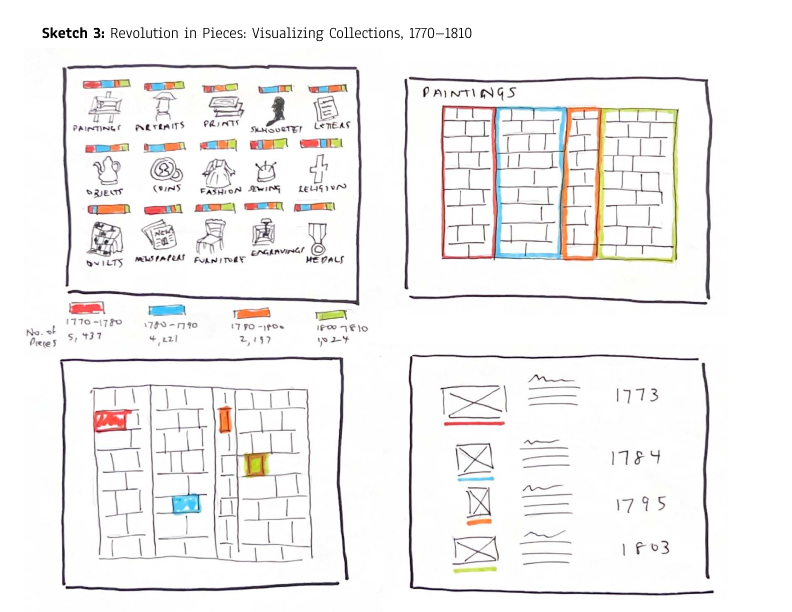 Sketch 3: Revolution in Pieces: Visualizing Collections, 1770–1810
PAINTINGS PORTRAITS PRINTS SILHOUETTES LETTERS
OBJECTS COINS FASHION SEWING RELIGION
NEWS
QUILTS NEWSPAPERS FURNITURE ENGRAVINGS MEDALS
PAINTINGS
1770-1780 1780-1790 1790-1800 1800-1810
No. of Pieces 5,437 4,221 2,197 1,024
1773
1784
1795
1803